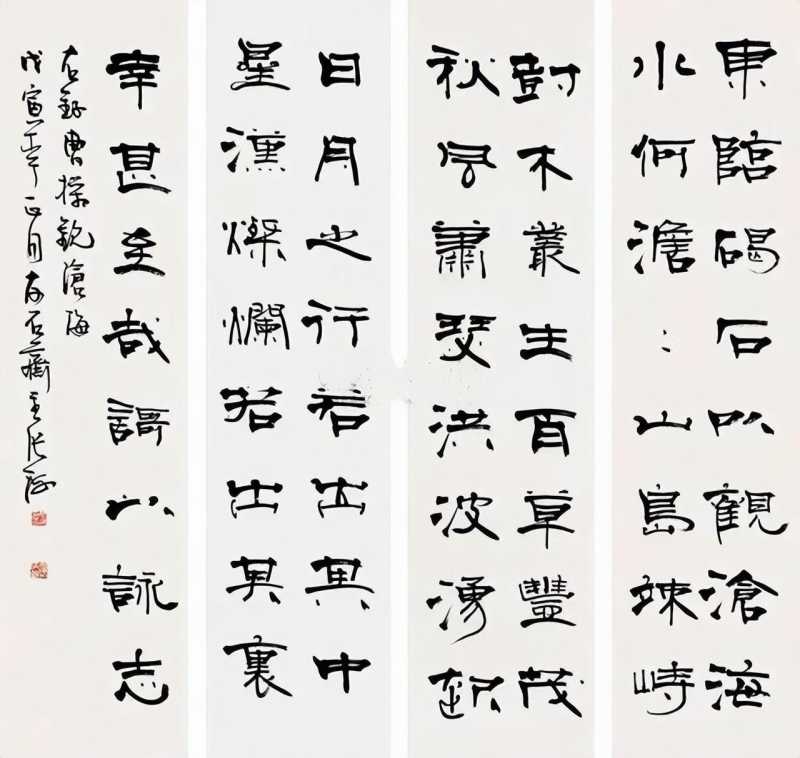 東臨碣石以觀滄海
水何澹〻山島竦峙
尌木叢生百草豐茂
秋風蕭瑟洪波湧起
日月之行若出其中
星漢燦爛若出其裏
幸甚至哉謌以詠志
右錄曹操觀滄海
戊寅年正月石齋主張海